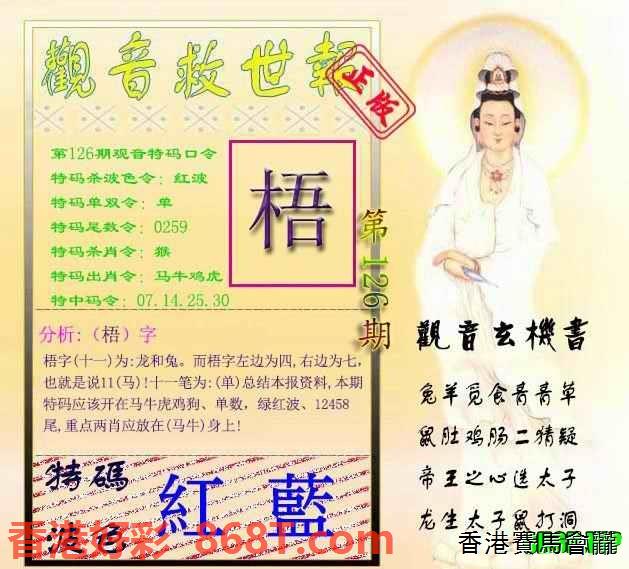 觀音救世報
正版
第126期观音特码口令
特码杀波色令：红波
特码单双令：单
特码尾数令：0259
特码杀肖令：猴
特码出肖令：马牛鸡虎
特中码令：07.14.25.30
梧
第126期
分析:（梧）字
梧字(十一)为:龙和兔。而梧字左边为四,右边为七,
也就是说11(马)!十一笔为:(单)总结本报资料,本期
特码应该开在马牛虎鸡狗、单数，绿红波、12458
尾,重点两肖应放在(马牛)身上!
特碼
波色
紅 藍
觀音玄機書
兔羊觅食青青草
鼠肚鸡肠二猜疑
帝王之心选太子
龙生太子鼠打洞
香港好彩 868T.com
香港賽馬會